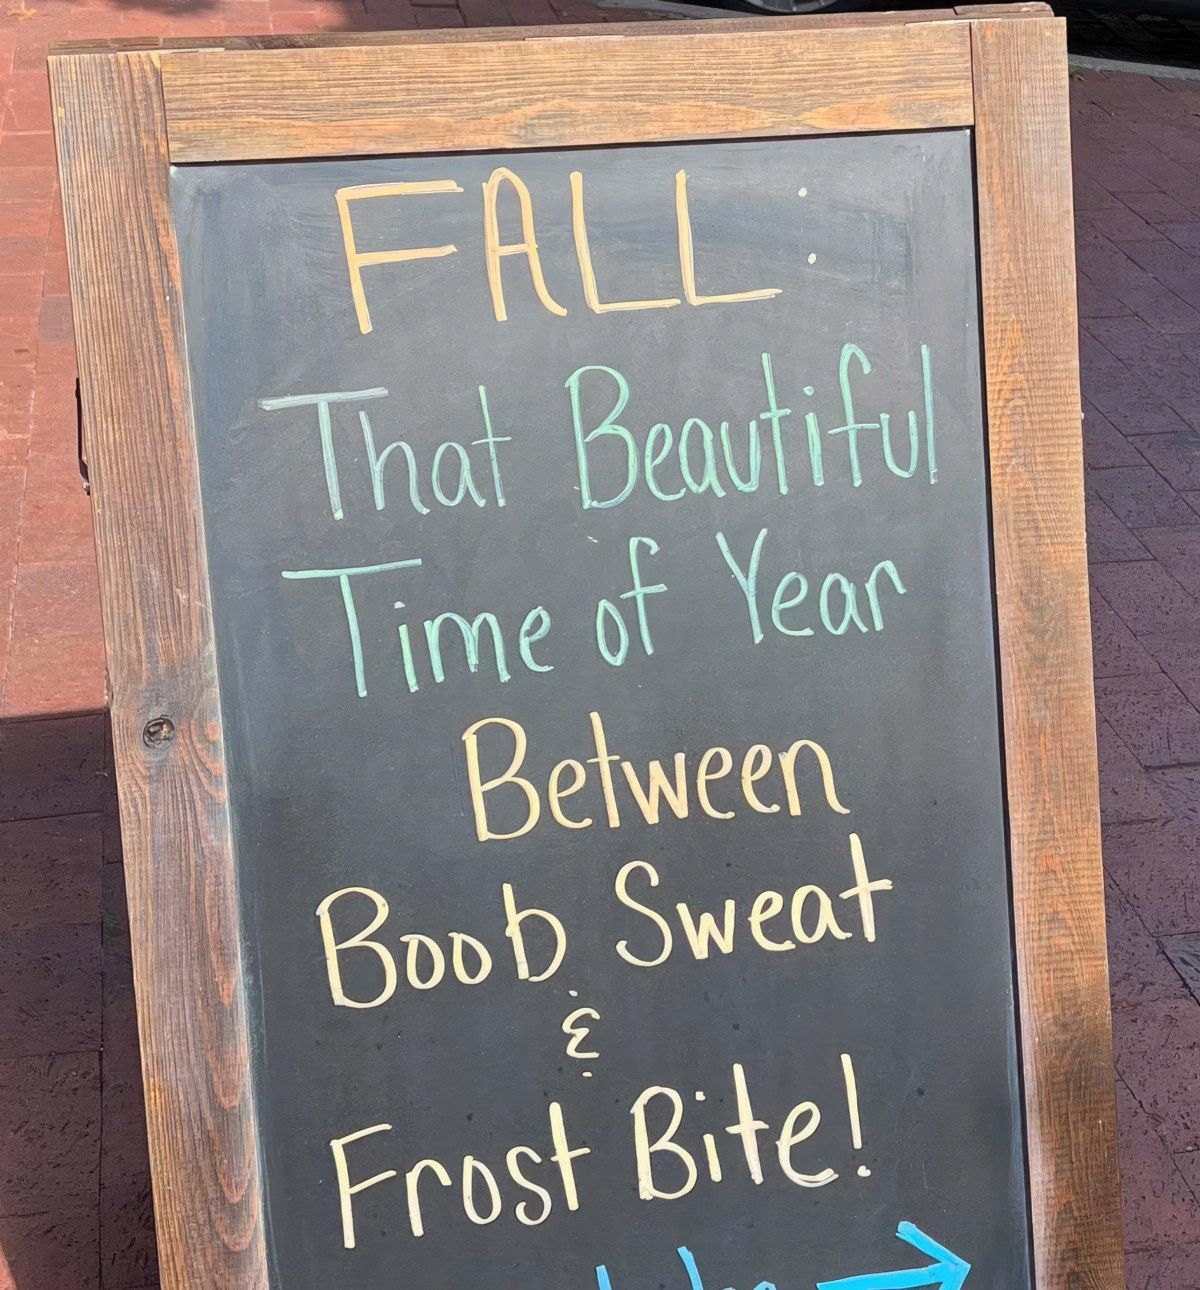 FALL:
That Beautiful
Time of Year
Between
Boob Sweat
&
Frost Bite!